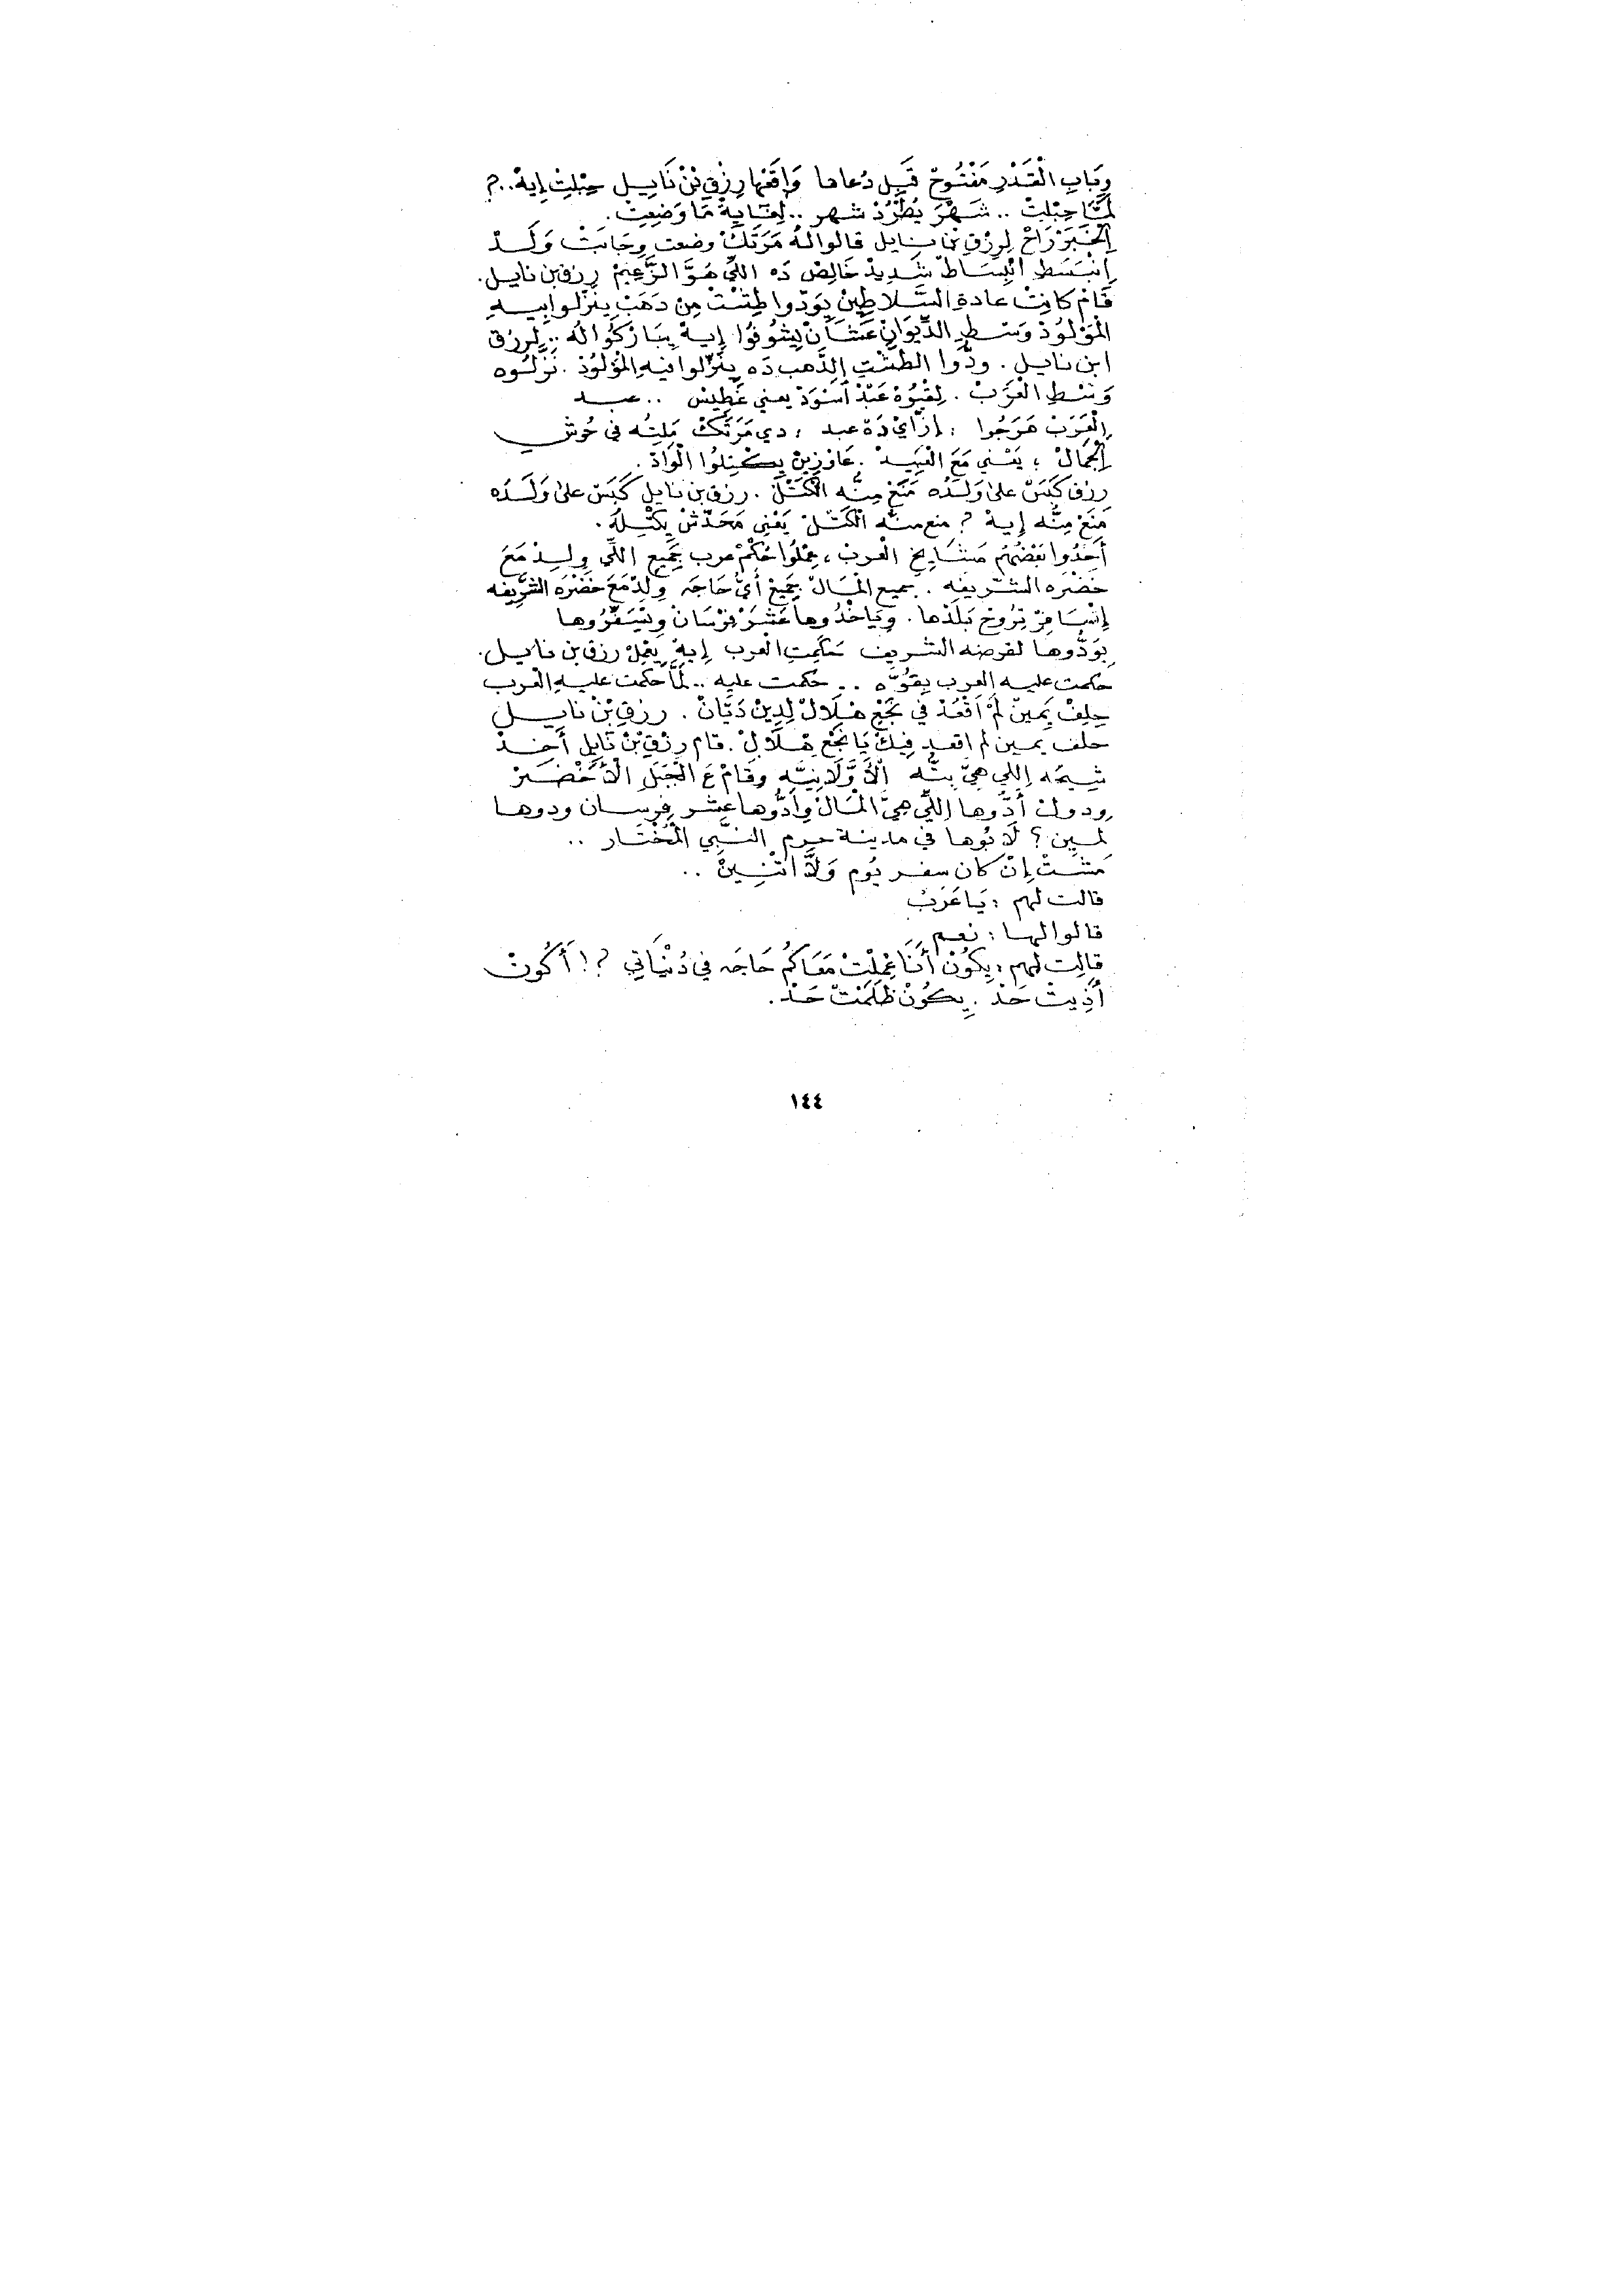 وِبَابِ الْقَدْرِ مَفْتُوحْ قَبِل دُعاها وَاقَعْها رِزْقِ بْنْ نَايِل حِبْلِتْ إِيهْ..؟
لَمَّا حِبْلِتْ .. شَهْرَ يُطْرُدْ شهر .. لِغَايِةْ مَا وَضِعِتْ.
اِلْخَبَرْ رَاحْ لِرِزْقِ بن نايل قالوا لهُ مَرَتَكْ وضعت وِجَابَتْ وَلَدْ
اِنْبَسَطِ انْبِسَاطْ شَدِيدْ خَالِصْ دَه اللِّي هُوَّ الزَّعِيمْ رزق بن نايل.
قَامْ كانِتْ عادة السَّلاطِينْ يِوَدّوا طِشْتْ مِنْ دَهَبْ يِنَزِّلوا بِيهِ
الْمَوْلُودْ وَسْطِ الدِّيوَانْ عَشَانْ يِشُوفُوا إِيهْ يِبَارْكُوا لُه .. لِرزق
ابن نايل . ودُّوا الطشْتِ الدَّهب دَه يِنَزِّلوا فيهِ الْمُولُودْ . نَزِّلُوه
وَسْطِ الْعَرَبْ . لِقْيُوهْ عَبْدْ أسْوَدْ يعني غَطِيسْ .. عبد
اِلْعَرَبْ هَرَجُوا : اِزَّايْ دَهْ عبد ، دي مَرَتَكْ مَلِيتُه في حُوشِ
الْجِمَالْ ؛ يَعْنِي مَعَ الْعَبِيدْ . عَاوْزِينْ يِكْتِلُوا الْوَادْ .
رزق كَبَسْ على وَلَدُه مَنَعْ مِنُّه الْكَتْلْ . رزق بن نايل كَبَسْ على وَلَدُه
مَنَعْ مِنُّه إِيهْ ؟ منع منُّه الْكَتْلْ يَعْنِي مَحَدِّشْ يِكْتِلُه .
أَخَدُوا بَعْضُهُمْ مَشَايِخِ الْعرب ، عِمْلُوا حُكْمْ عرب جَمِيعِ اللِّي وِلِدْ مَعَ
خَضْرَه الشَّريفه . جميع الْمَالْ جَمِيعْ أَيِّ حَاجَه وِلِدْ مَعَ خَضْرَه الشَّرِيفه
اِتْسَافِرْ تِرُوحْ بَلَدْها . وِيَاخْدُوها عَشَرْ فِرْسَانْ وِيْسَفَّرُوها
يِوَدُّوها لقرضه الشريف حَكَمِتِ الْعرب إِيهْ يِعْمِلْ رزق بن نايل .
حكمت عليه العرب بِقُوَّه .. حكمت عليه .. لَمَّا حكمت عليهِ الْعرب
حِلِفْ يَمِينْ لَمْ اَقْعُدْ فِي نَجْعِ هِلَالْ لِدِينْ دَيَّانْ . رزق بْنْ نايل
حلف يمين لم اقعد فِيكْ يَا نَجْعِ هِلَالْ . قام رزق بْنْ نَايِل أَخَدْ
شِيحَه اِللي هِيّ بِتُّه الْأَوَّلَانِيَّه وِقَامْ عَ الْجَبَلِ الْأَخْضَرْ
وِدولْ أَدُّوها اِللِّي هِيَّ الْمَالْ وِادُّوها عشر فِرسان ودوها
لمين ؟ لابُوها في مدينة حرم النَّبِي الْمُخْتَار ..
مَشَتْ إِنْ كان سفر يُومْ وَلَّا اتْنِينْ ..
قالت لهم : يَا عَرَبْ
قالوا لها : نعم
قالِت لهم : يِكُونْ أَنَا عْمِلْتْ مَعَاكُمْ حَاجَه فِي دُنْيَاتِي ؟! أَكُونْ
أَذِيتْ حَدْ . يِكُونْ ظَلَمْتْ حَدْ .
١٤٤